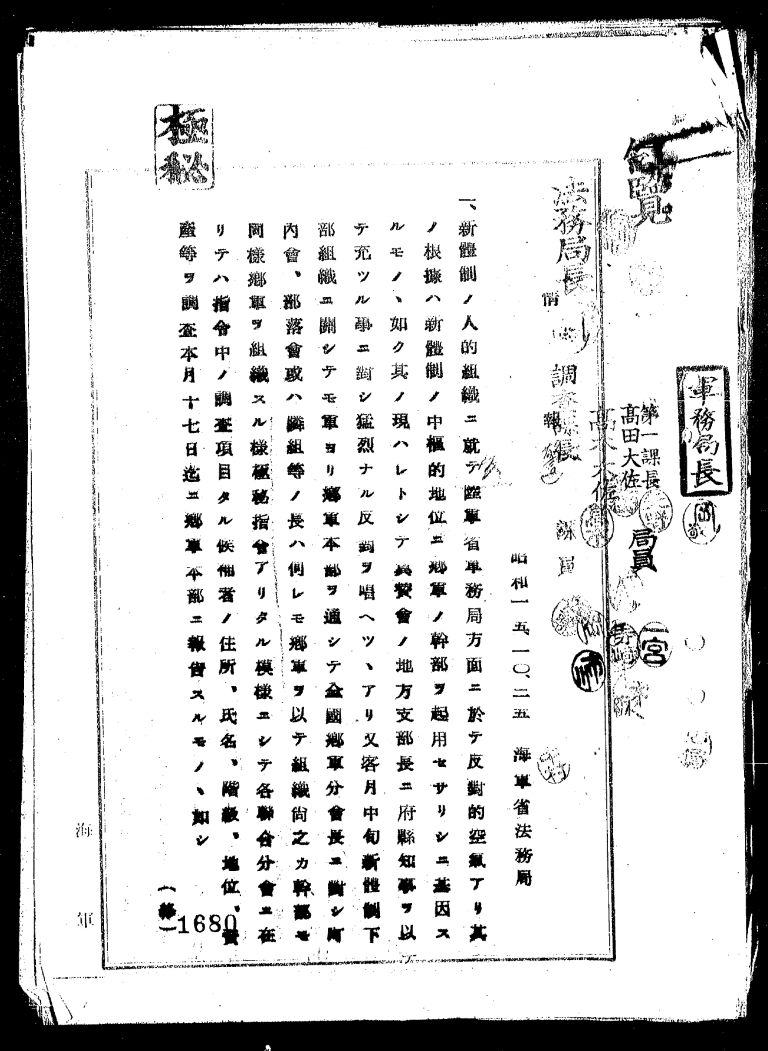 供覽
軍務局長
第一課長
高田大佐
局員
一宮
法務局長
調査課長
課員
極秘
情報
昭和一五、一〇、二五 海軍省法務局
一、新體制ノ人的組織ニ就テ陸軍省軍務局方面ニ於テ反對的空氣アリ其
ノ根據ハ新體制ノ中樞的地位ニ鄕軍ノ幹部ヲ起用セサリシニ基因ス
ルモノヽ如ク其ノ現ハレトシテ翼賛會ノ地方支部長ニ府縣知事ヲ以
テ充ツル事ニ對シ猛烈ナル反對ヲ唱ヘツヽアリ又客月中旬新體制下
部組織ニ關シテモ軍ヨリ鄕軍本部ヲ通シテ全國鄕軍分會長ニ對シ町
內會、部落會或ハ隣組等ノ長ハ何レモ鄕軍ヲ以テ組織尙之カ幹部モ
同樣鄕軍ヲ組織スル樣極秘指令アリタル模樣ニシテ各聯合分會ニ在
リテハ指令中ノ調査項目タル候補者ノ住所、氏名、階級、地位、資
產等ヲ調査本月十七日迄ニ鄕軍本部ニ報告スルモノヽ如シ
(終)
1680
海軍